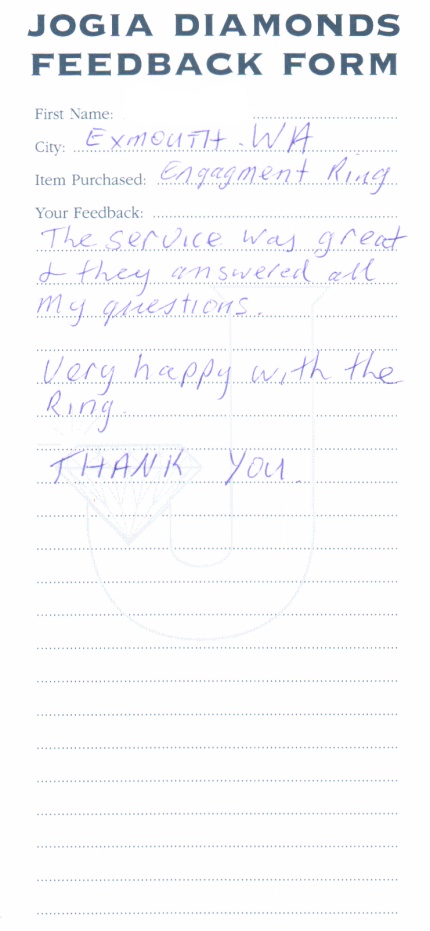 JOGIA DIAMONDS
FEEDBACK FORM
First Name:
City: Exmouth. WA
Item Purchased: Engagment Ring
Your Feedback:
The service was great
& they answered all
My questions.
Very happy with the
Ring.
THANK YOU.